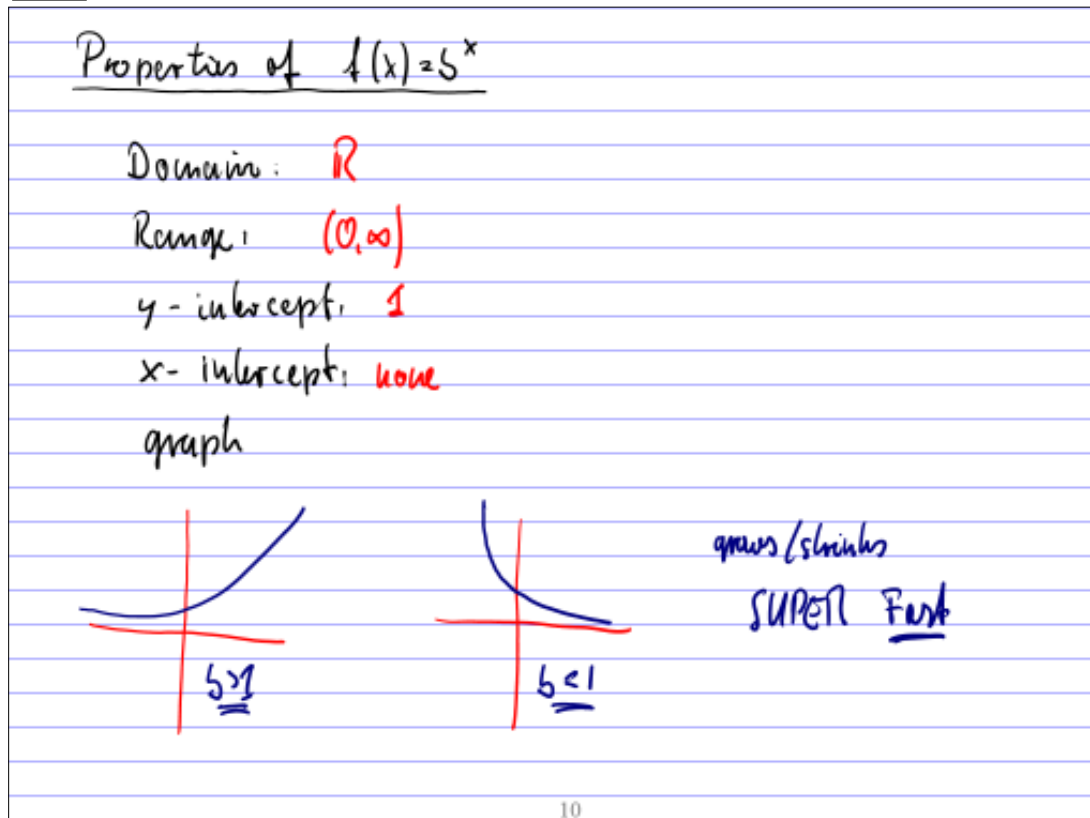 Properties of f(x)=b^x
Domain: ℝ
Range: (0,∞)
y-intercept: 1
x-intercept: none
graph
grows/shrinks
SUPER Fast
b>1
b<1
10